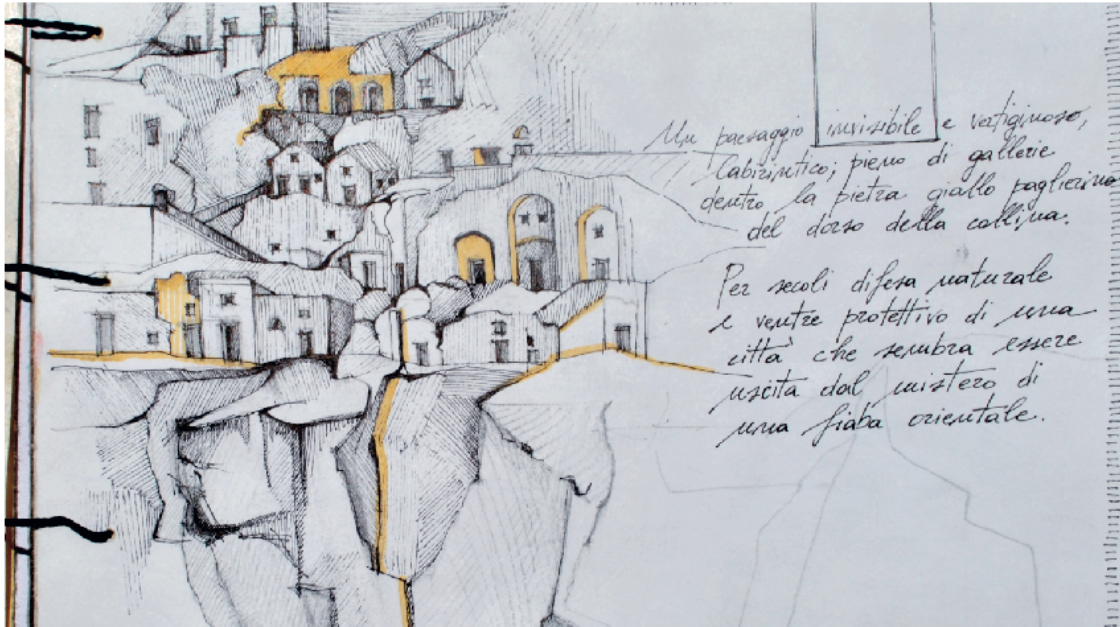 Un paesaggio invisibile e vertiginoso,
labirintico; pieno di gallerie
dentro la pietra giallo paglierino
del dorso della collina.
Per secoli difesa naturale
e ventre protettivo di una
città che sembra essere
uscita dal mistero di
una fiaba orientale.